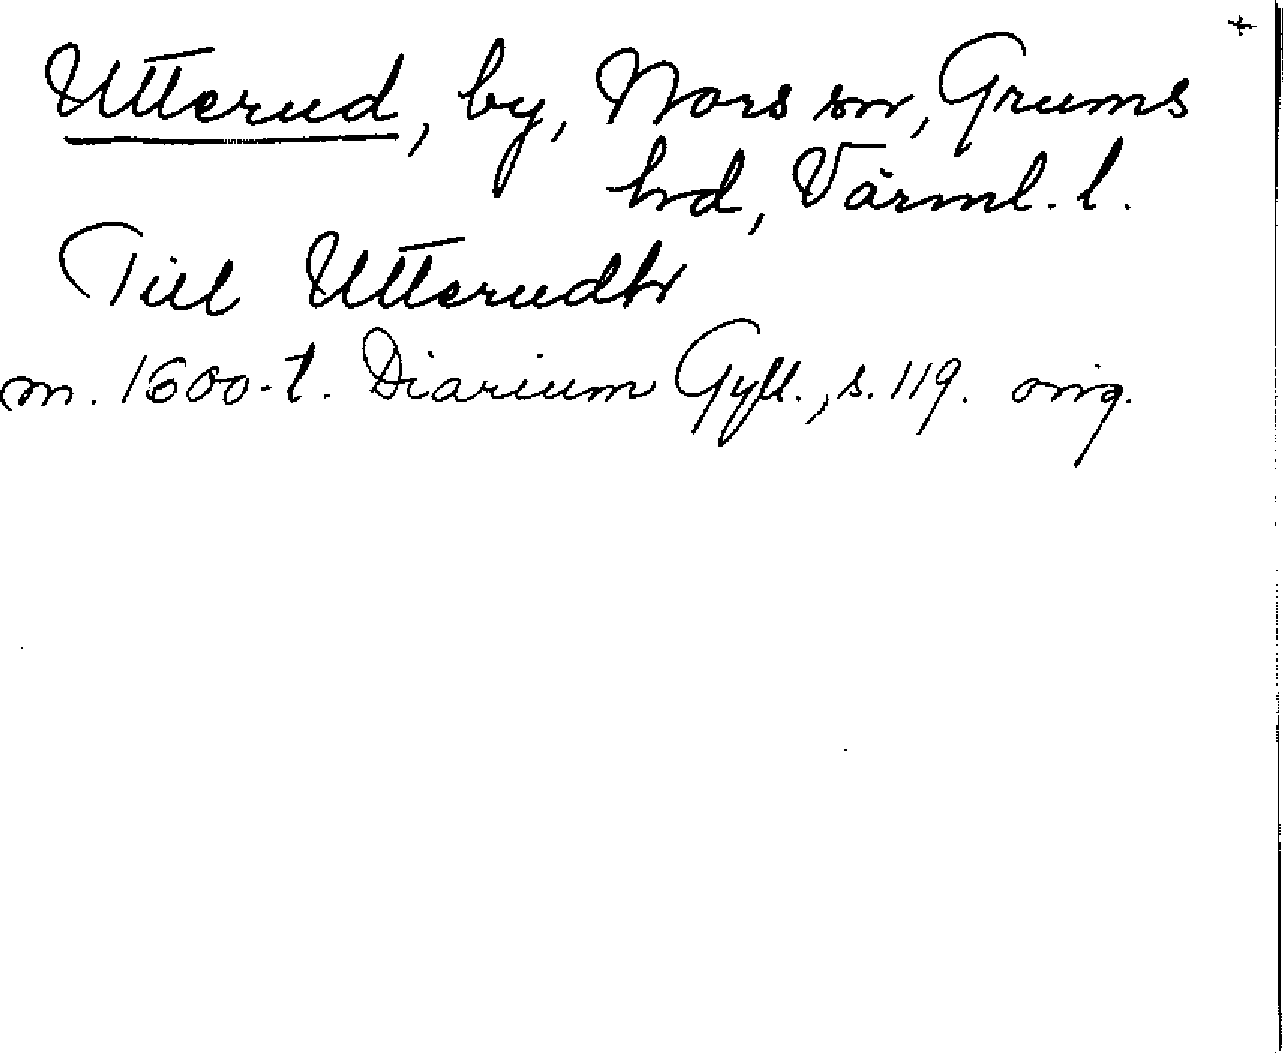 +
Utterud, by, Nors sn, Grums
hd, Värml. l.
Till Utterudh
m. 1600-t. Diarium Gyll., s. 119. orig.